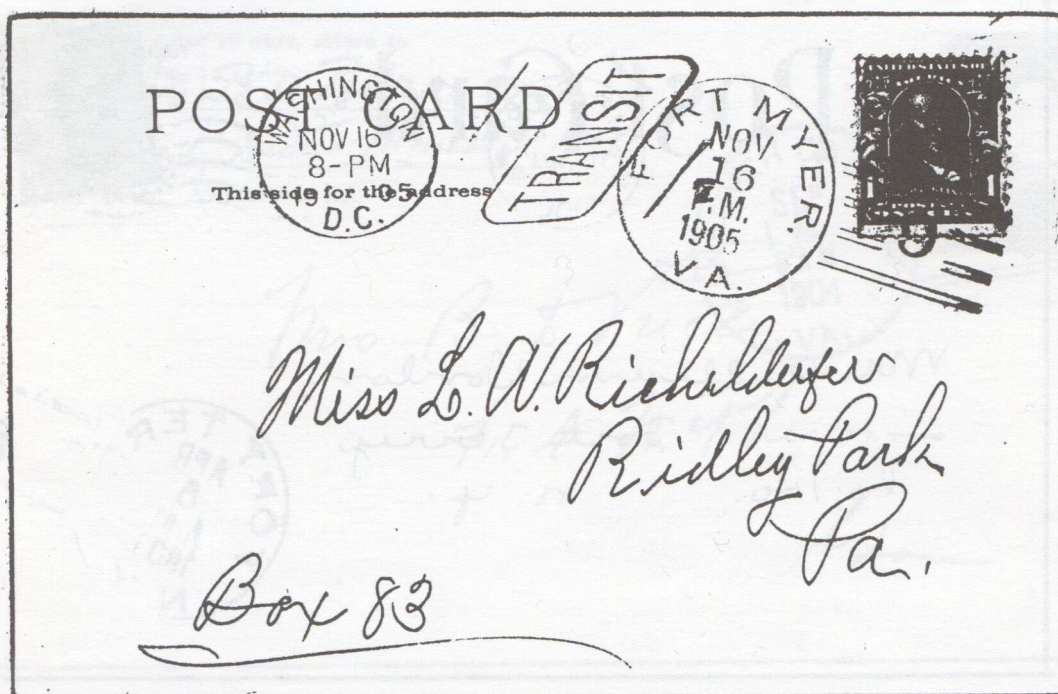 POST CARD
This side for the address
WASHINGTON
NOV 16
8-PM
19 05
D.C.
TRANSIT
FORT MYER.
NOV
16
P.M.
1905
VA.
Miss L. W. Richeldeufer
Ridley Park
Pa.
Box 83